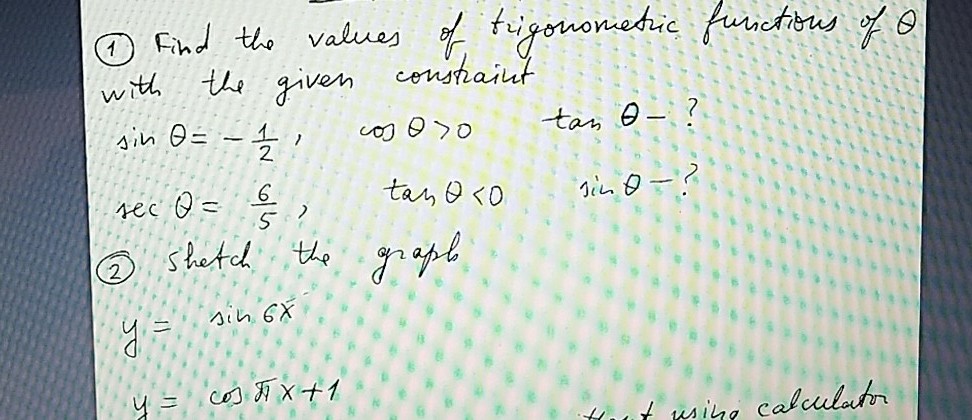 ① Find the values of trigonometric functions of θ
with the given constraint
sin θ = - 1/2, cos θ > 0 tan θ - ?
sec θ = 6/5, tan θ < 0 sin θ - ?
② Sketch the graph
y = sin 6x
y = cos πx + 1
using calculator